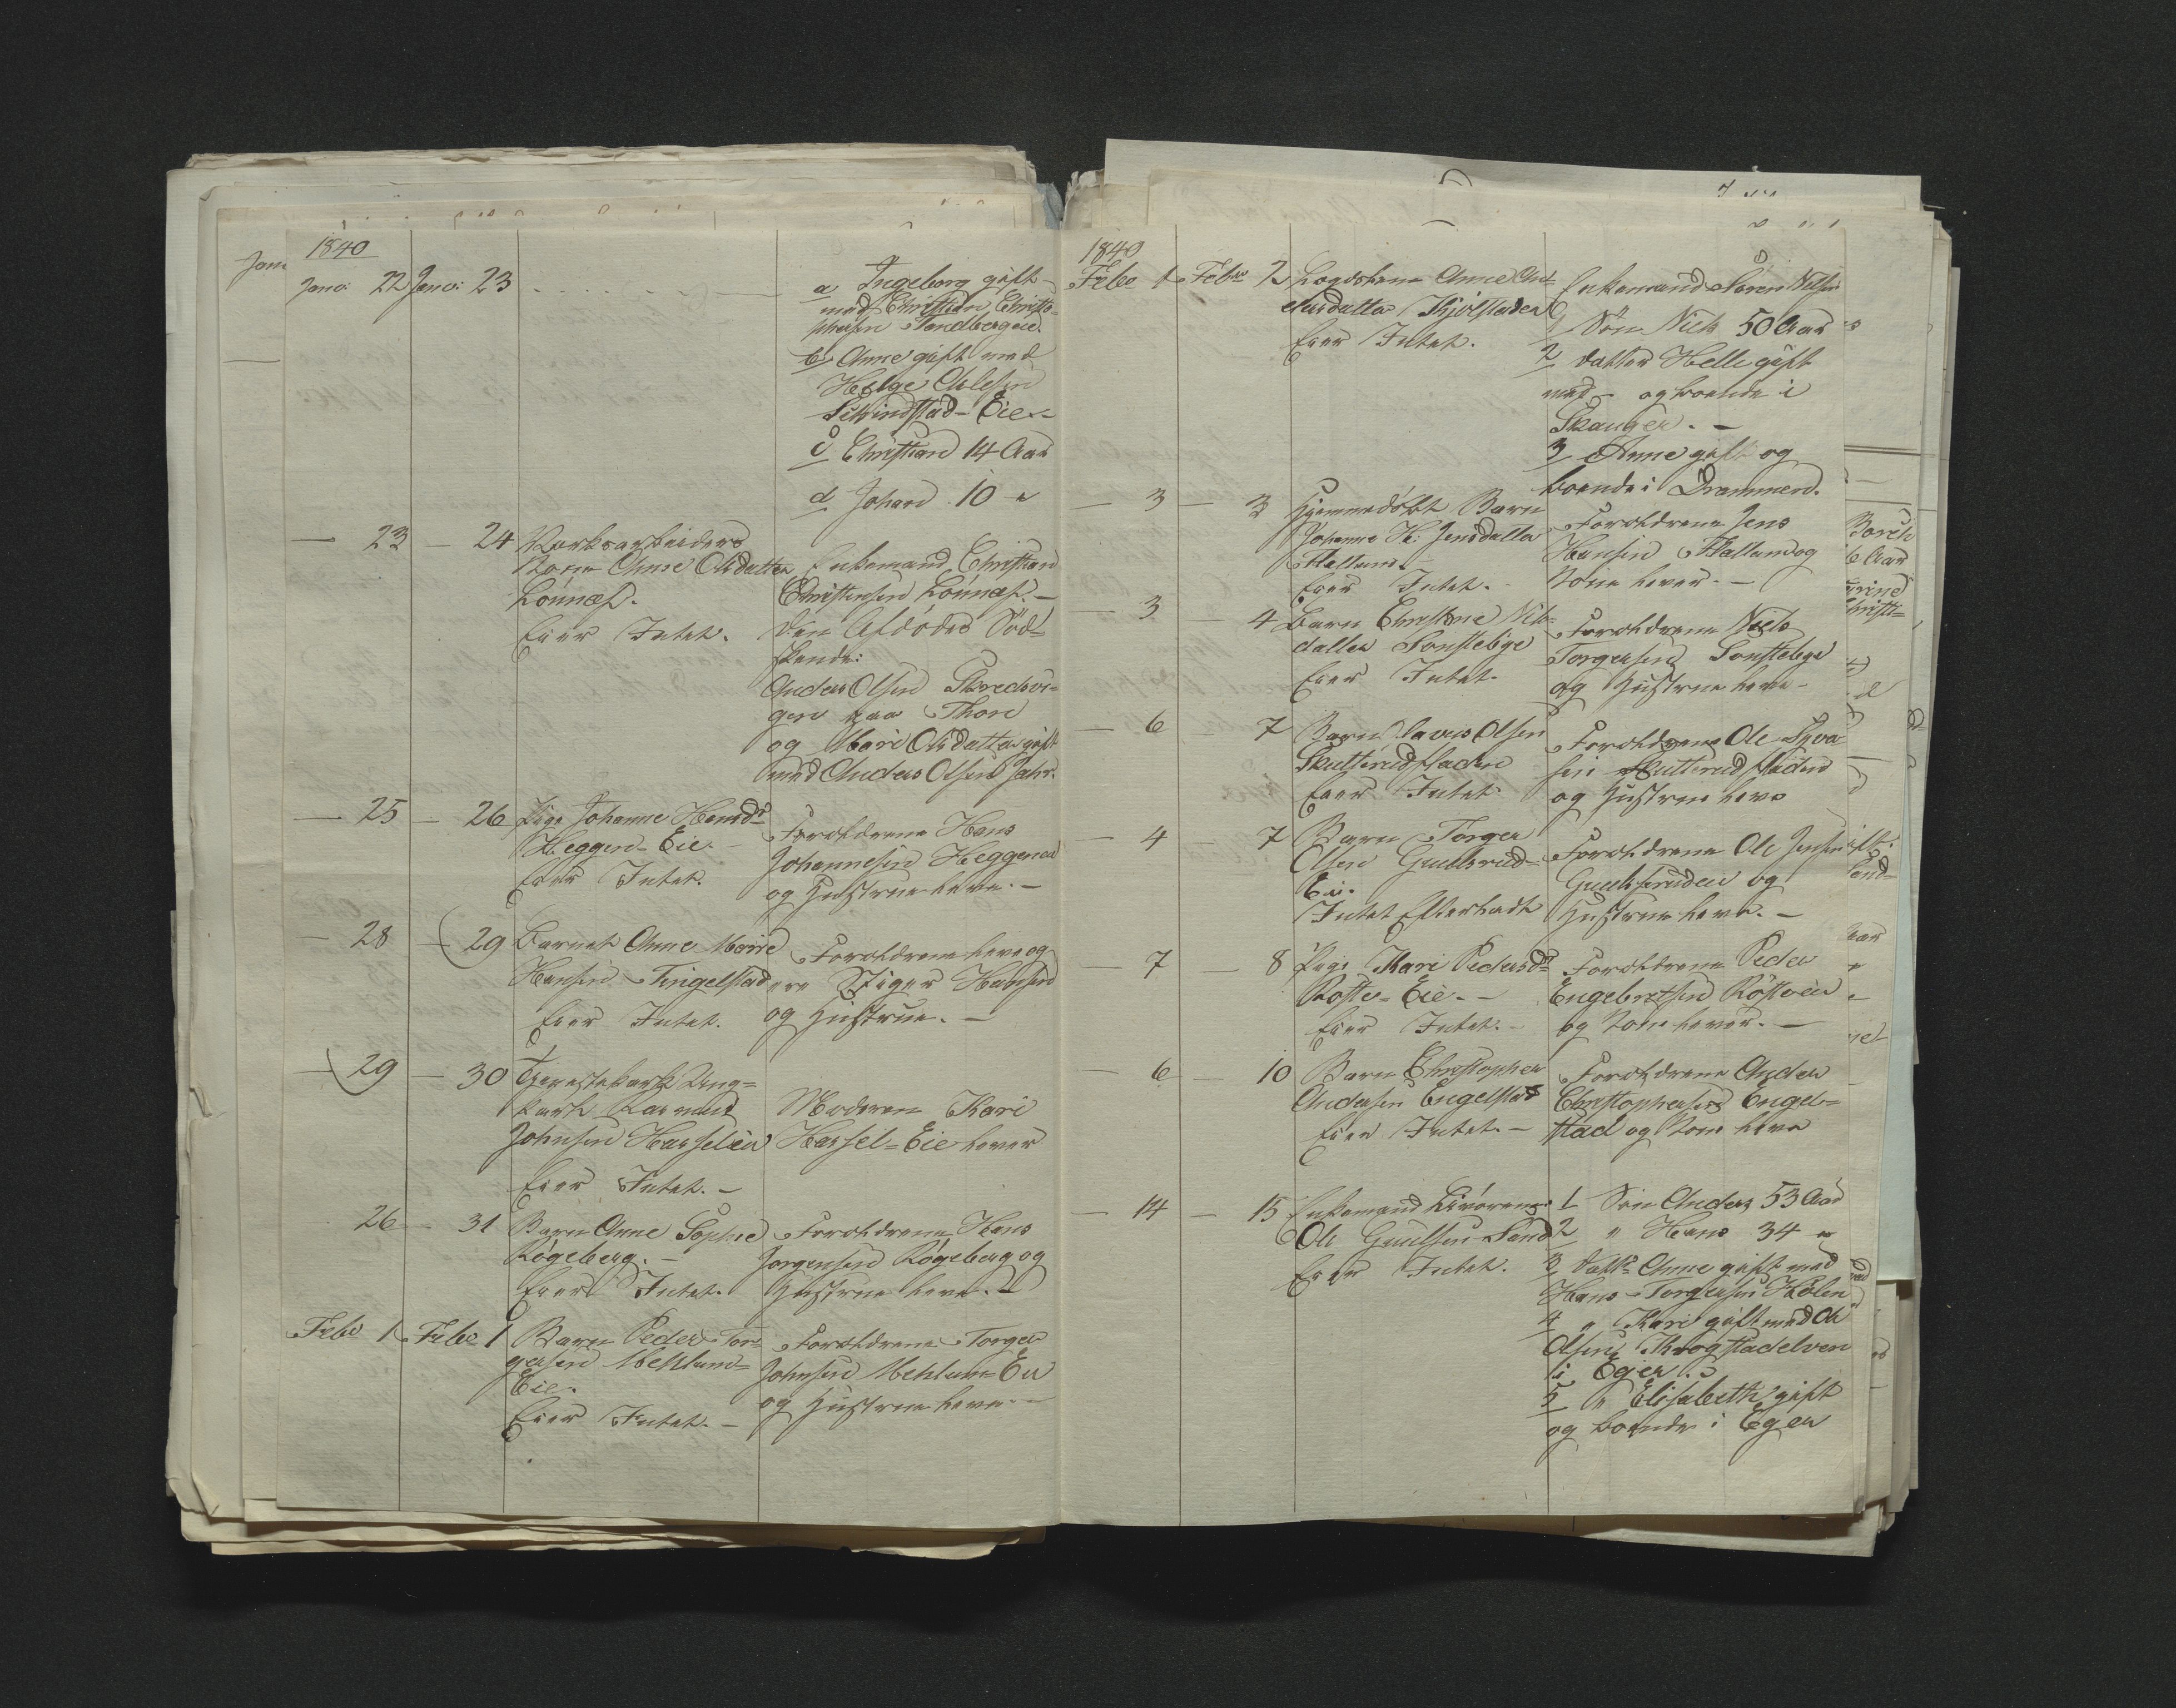 1840
Janr: 22 Janr: 23
a Ingeborg gift
med Christian Christo-
phersen Tandbergeie.
b Anne gift med
Helge Olesen
Eie
c Christian 14 Aar
d Johan 10 "
— 23 — 24 Værksarbeiders
Kone Anne Olsdatter
Lönnæs.
Eier Intet.
Enkemand Christian
Christensen Lönnæs. —
Den Afdödes Söd-
skende:
Anders Olsen Skredsvi-
gen paa Thon
og Mari Olsdatter gift
med Anders Olsen Jahr.
— 25 — 26 Pige Johanne Hansdr
Heggen-Eie.
Eier Intet.
Forældrene Hans
Johannesen Heggenei
og Hustrue leve. —
— 28 — 29 Barnet Anne Marie
Hansen Tingelstad
Eier Intet.
Forældrene leve og
ere Stiger Hansen
og Hustrue. —
— 29 — 30 Tjenestekarl Ung-
karl Rasmus
Johnsen Hasseleie
Eier Intet. —
Moderen Kari
Hassel-Eie lever
26 — 31 Barn Anne Sophie
Rögeberg. —
Eier Intet.
Forældrene Hans
Jorgensen Rögeberg og
Hustrue leve. —
Febr 1 Febr 1 Barn Peder Tor-
gersen Mehlum-
Eie.
Eier Intet. —
Forældrene Torger
Johnsen Mehlum-Eie
og Hustrue leve. —
1840
Febr 1 Febr 2 Logdskone Anne An-
dersdatter Kjölstadeie
Eier Intet.
Enkemand Sören Nilsen
1 Sön Niels 50 Aar
2 datter Helle gift
med — og boende i
Skauger. —
3 Anne gift og
boende i Drammen.
— 3 — 3 Hjemmedöbt Barn
Johanne K: Jensdatter
Flattum.
Eier Intet.
Forældrene Jens
Hansen Flattum og
Kone lever. —
— 3 — 4 Barn Christine Niels-
datter Sonstebye
Eier Intet.
Forældrene Niels
Torgersen Sonstebye
og Hustrue leve —
— 6 7 Barn Olaves Olsen
Skutterudstaden
Eier Intet
Forældrene Ole Syver
sen Skutterudstaden
og Hustrue leve
— 4 — 7 Barn Torger
Olsen Gunlsrud-
Eie.
Intet Efterladt
Forældrene Ole Jensen
Gunlsrudeie og
Hustrue leve. —
— 7 — 8 Pige Kari Pedersdr
Roste-Eie. —
Eier Intet. —
Forældrene Peder
Engebretsen Rösteeie
og Kone lever. —
— 6 — 10 Barn Christopher
Andersen Engelstad
Eier Intet. —
Forældrene Anders
Christophersen Engel-
stad og Kone leve
— 14 — 15 Enkemand
Ole Gunlsen Sand
Eier Intet.
1 Sön Anders 53 Aar
2 " Hans 34 "
3 Dattr Anne gift med
Hans Torgersen Hölen
4 " Kari gift med Ole
Olsen Krogstadelven
i Eger.
5 " Elisabeth gift
og boende i Eger